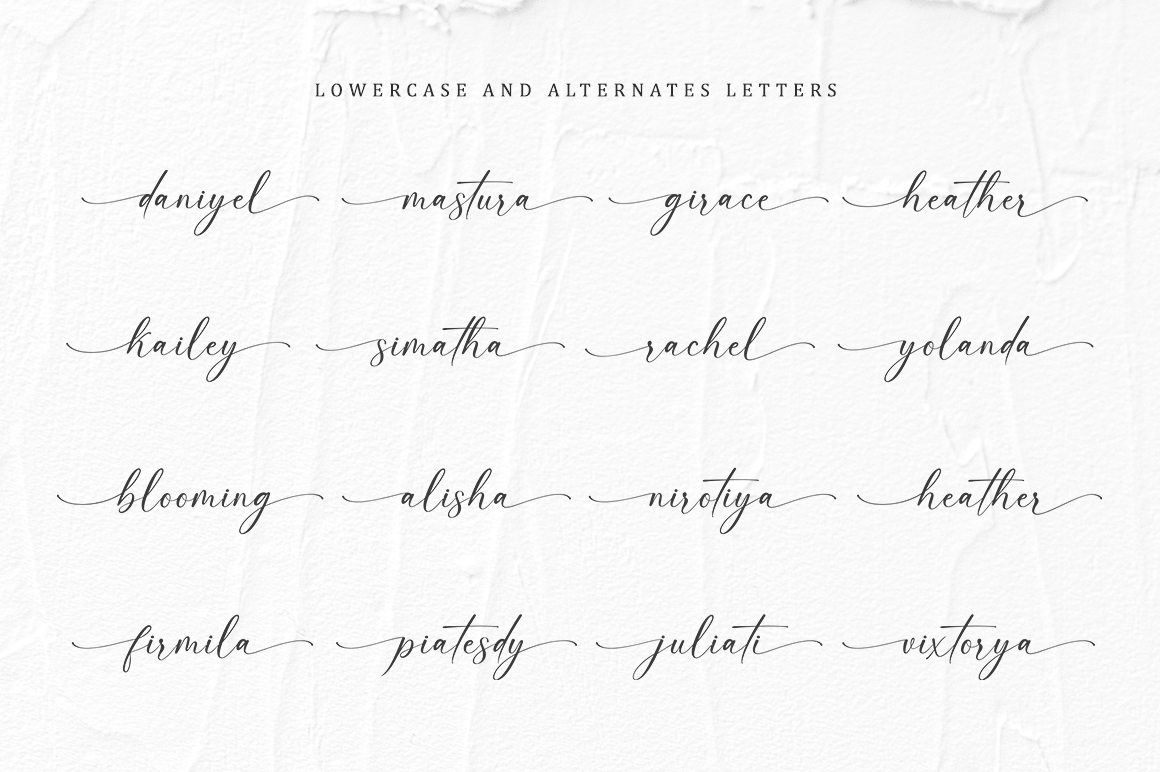 LOWERCASE AND ALTERNATES LETTERS
daniyel mastura girace heather
kailey simatha rachel yolanda
blooming alisha nirotiya heather
firmila piatesdy juliati vixtorya